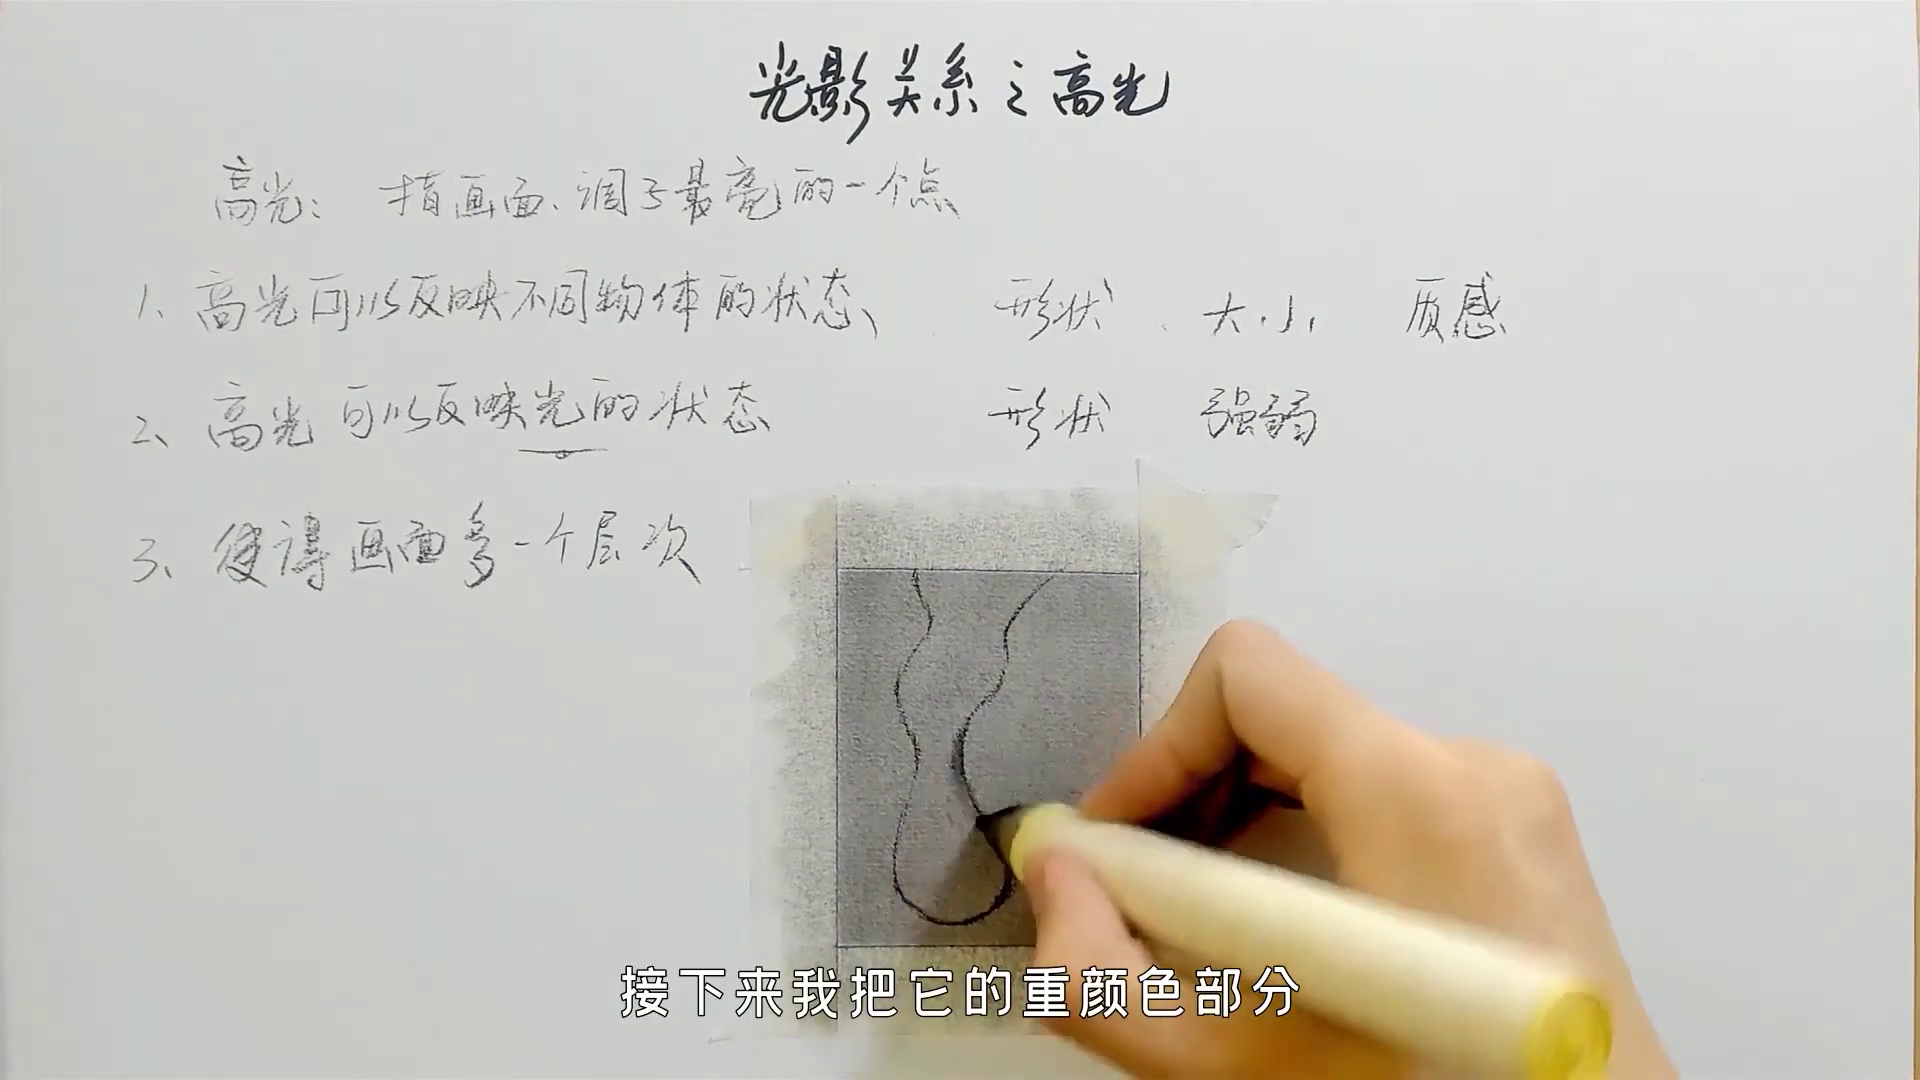 光影关系之高光
高光：指画面、调子最亮的一个点
1、高光可以反映不同物体的状态、 形状、大小、 质感
2、高光可以反映光的状态 形状 强弱
3、使得画面多一个层次
接下来我把它的重颜色部分